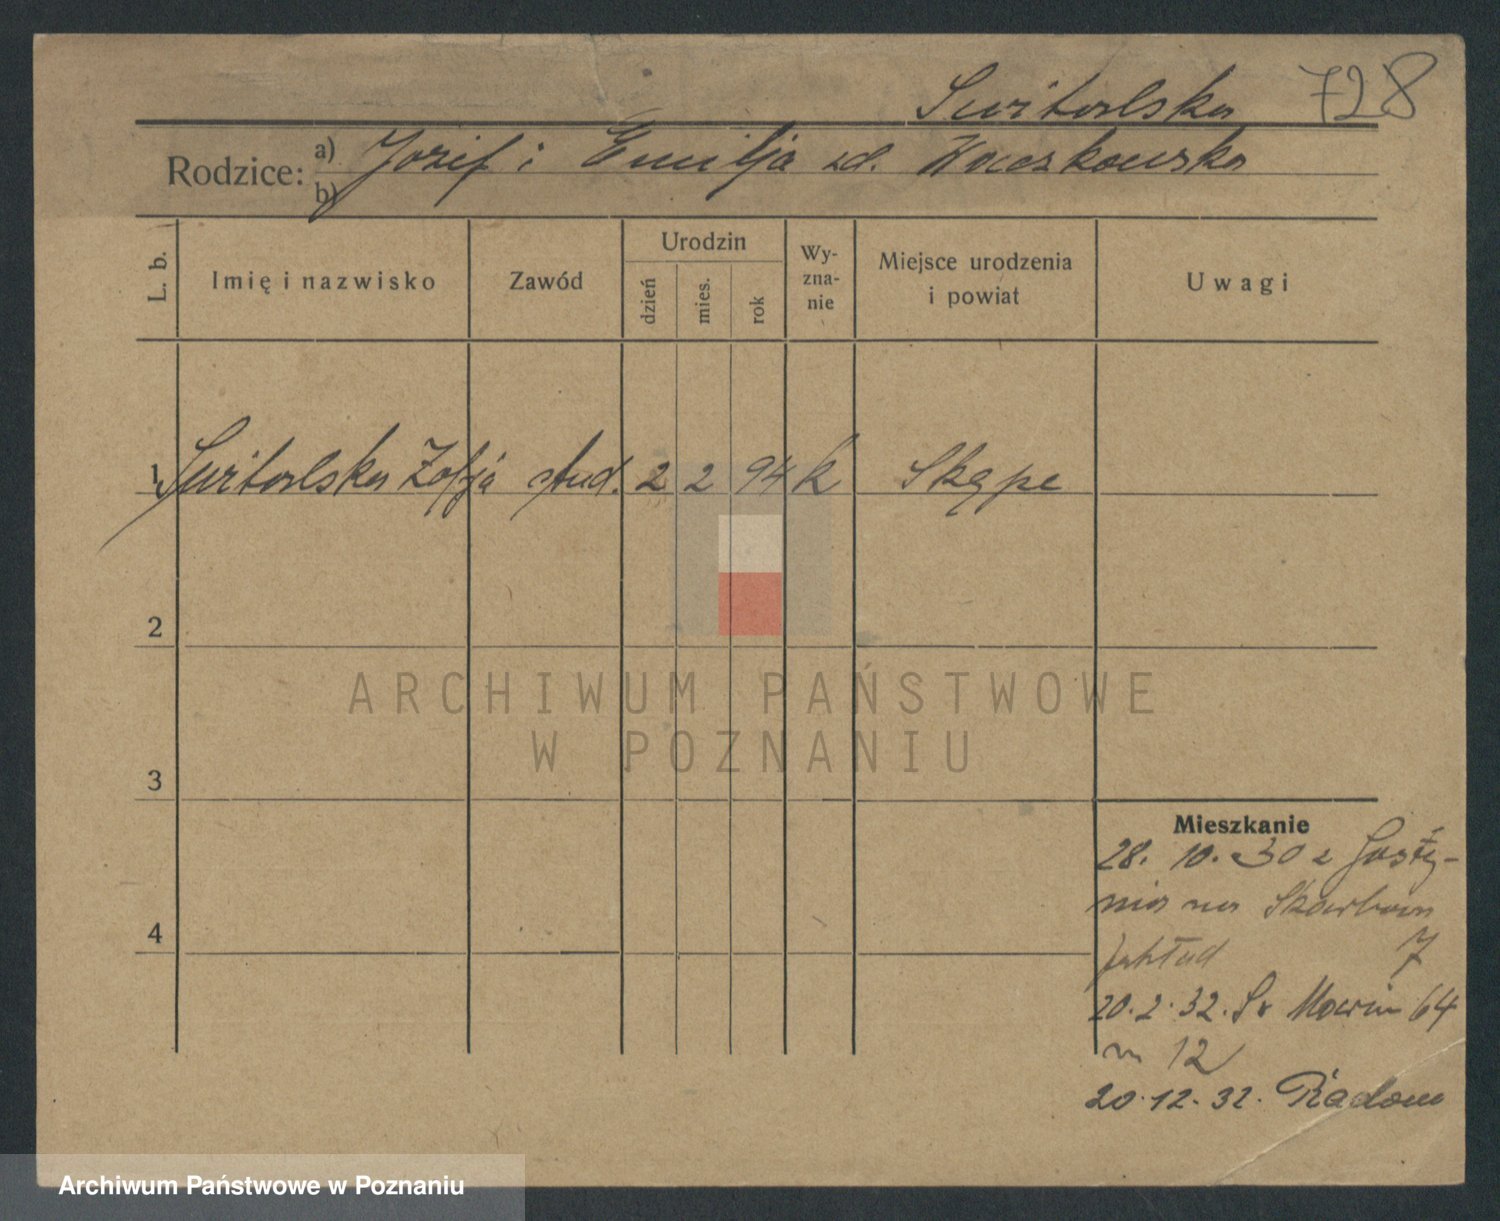 Switalska 728
Rodzice: a) Józef i Emilja zd. Kaczkowska
b)
L. b. Imię i nazwisko Zawód Urodzin dzień mies. rok Wy-zna-nie Miejsce urodzenia i powiat Uwagi
1 Switalska Zofja stud. 2 2 94 k Skąpe
2
ARCHIWUM PAŃSTWOWE
W POZNANIU
3
Mieszkanie
28. 10. 30 z Gosty-
nia na
zakład 7
4
20. 2. 32. Sw Marcin 64
m 12
20. 12. 32. Radom
Archiwum Państwowe w Poznaniu